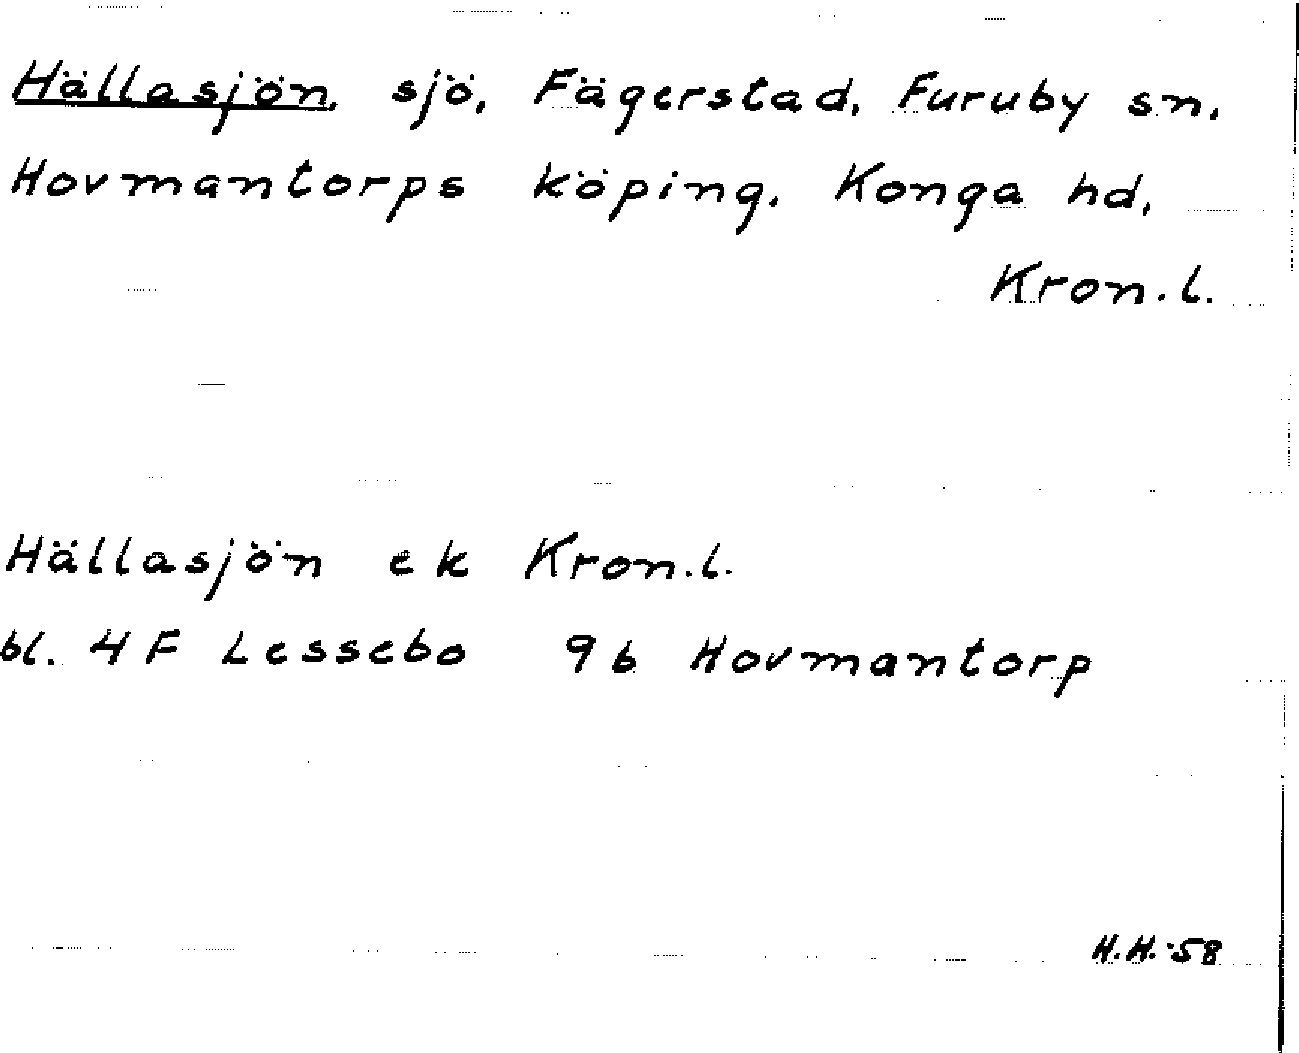 Hällasjön, sjö, Fägerstad, Furuby sn,
Hovmantorps köping, Konga hd,
Kron.l.
Hällasjön ek Kron.l.
bl. 4F Lessebo 9b Hovmantorp
H.H.-58